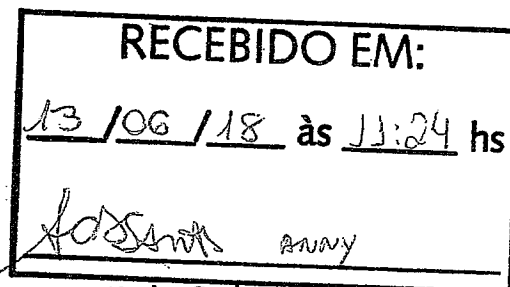 RECEBIDO EM:
13/06/18 às 11:24 hs
ANNY